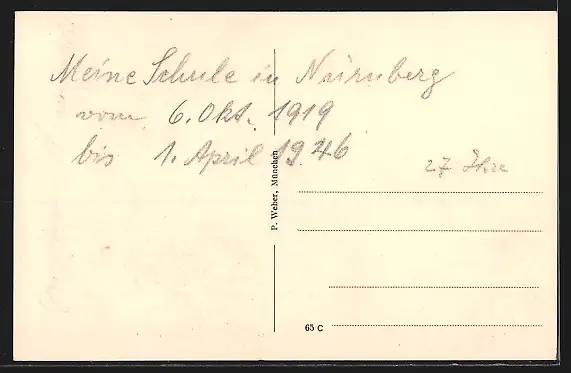 Meine Schule in Nürnberg
vom 6. Okt. 1919
bis 1. April 1946
27 Jhre
P. Weber, München
65 C